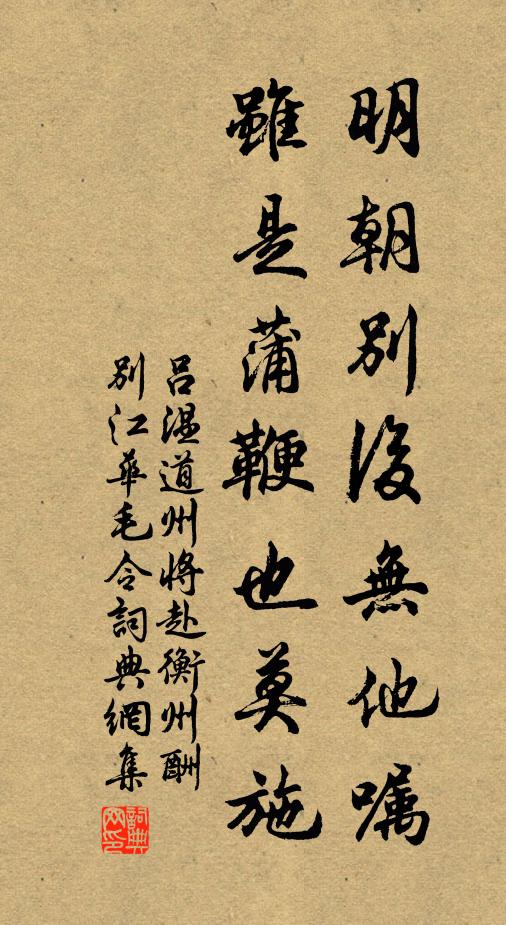 明朝別後無他嘱
雖是蒲鞭也莫施
呂温道州将赴衡州酬
別江華毛令詞典網集
詞典
网印